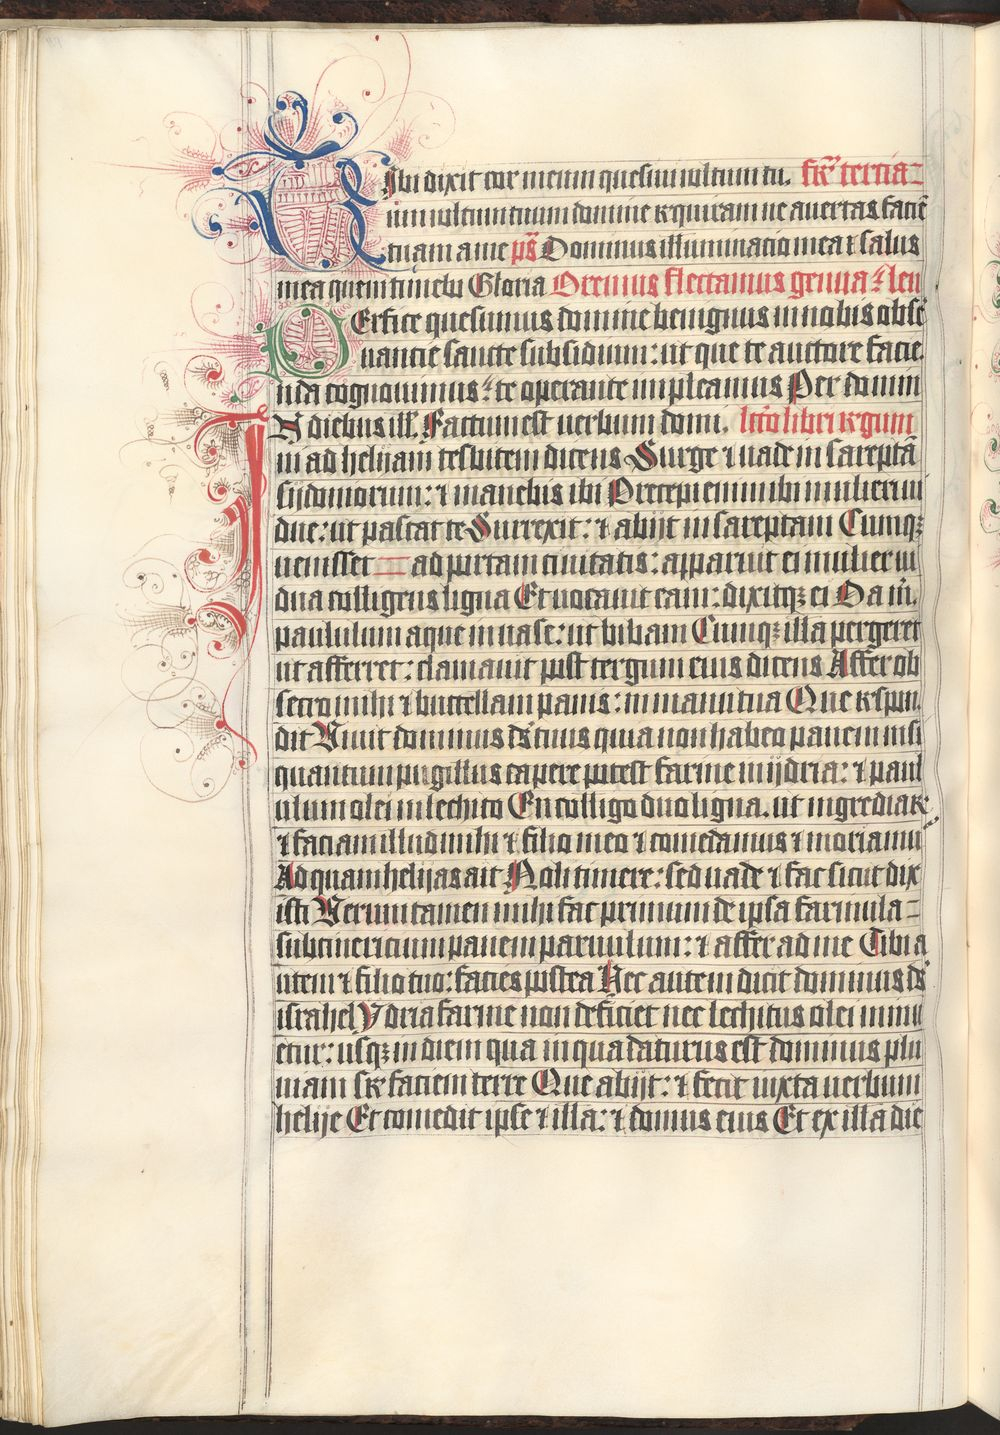 Tibi dixit cor meum quesiui uultum tu. fe͞r tercia
um uultum tuum domine requiram ne auertas facie͞
tuam a me ps̄ Dominus illuminacio mea ⁊ salus
mea quem timebo Gloria Oremus flectamus genua ⁊ leu
Perfice quesumus domine benignus in nobis obse͞r
uancie sancte subsidium: ut que te auctore facie.
nda cognouimus: te operante impleamus Per domin
In diebus ill̄. Factum est uerbum domi. lc̄o libri regum
ni ad helijam tesbitem dicens Surge ⁊ uade in sarepta͞
sijdoniorum: ⁊ manebis ibi Precepi enim ibi mulieri ui
due: ut pascat te Surrexit: ⁊ abijt in sareptam Cumqꝫ
uenisset ad portam ciuitatis: apparuit ei mulier ui
dua colligens ligna Et uocauit eam: dixitqꝫ ei Da m̄.
paululum aque in uase: ut bibam Cumqꝫ illa pergeret
ut afferret: clamauit post tergum eius dicens Affer ob
secro mihi ⁊ buccellam panis: in manu tua Que respon.
dit Viuit dominus ds̄ tuus quia non habeo panem nisi
quantum pugillus capere potest farine in ijdria: ⁊ paul
ulum olei in lechito En colligo duo ligna. ut ingrediar
⁊ faciam illud mihi ⁊ filio meo ⁊ comedamus ⁊ moriamu
Ad quam helijas ait Noli timere: sed uade ⁊ fac sicut dix
isti Verumtamen mihi fac primum de ipsa farinula
subcinericium panem paruulum: ⁊ affer ad me Tibi a
utem ⁊ filio tuo: facies postea Hec autem dicit dominus ds̄
israhel Ydria farine non deficiet nec lechitus olei minu
etur: usqꝫ in diem qua in qua daturus est dominus plu
uiam sr̄ faciem terre Que abijt: ⁊ fecit iuxta uerbum
helije Et comedit ipse ⁊ illa: ⁊ domus eius Et ex illa die